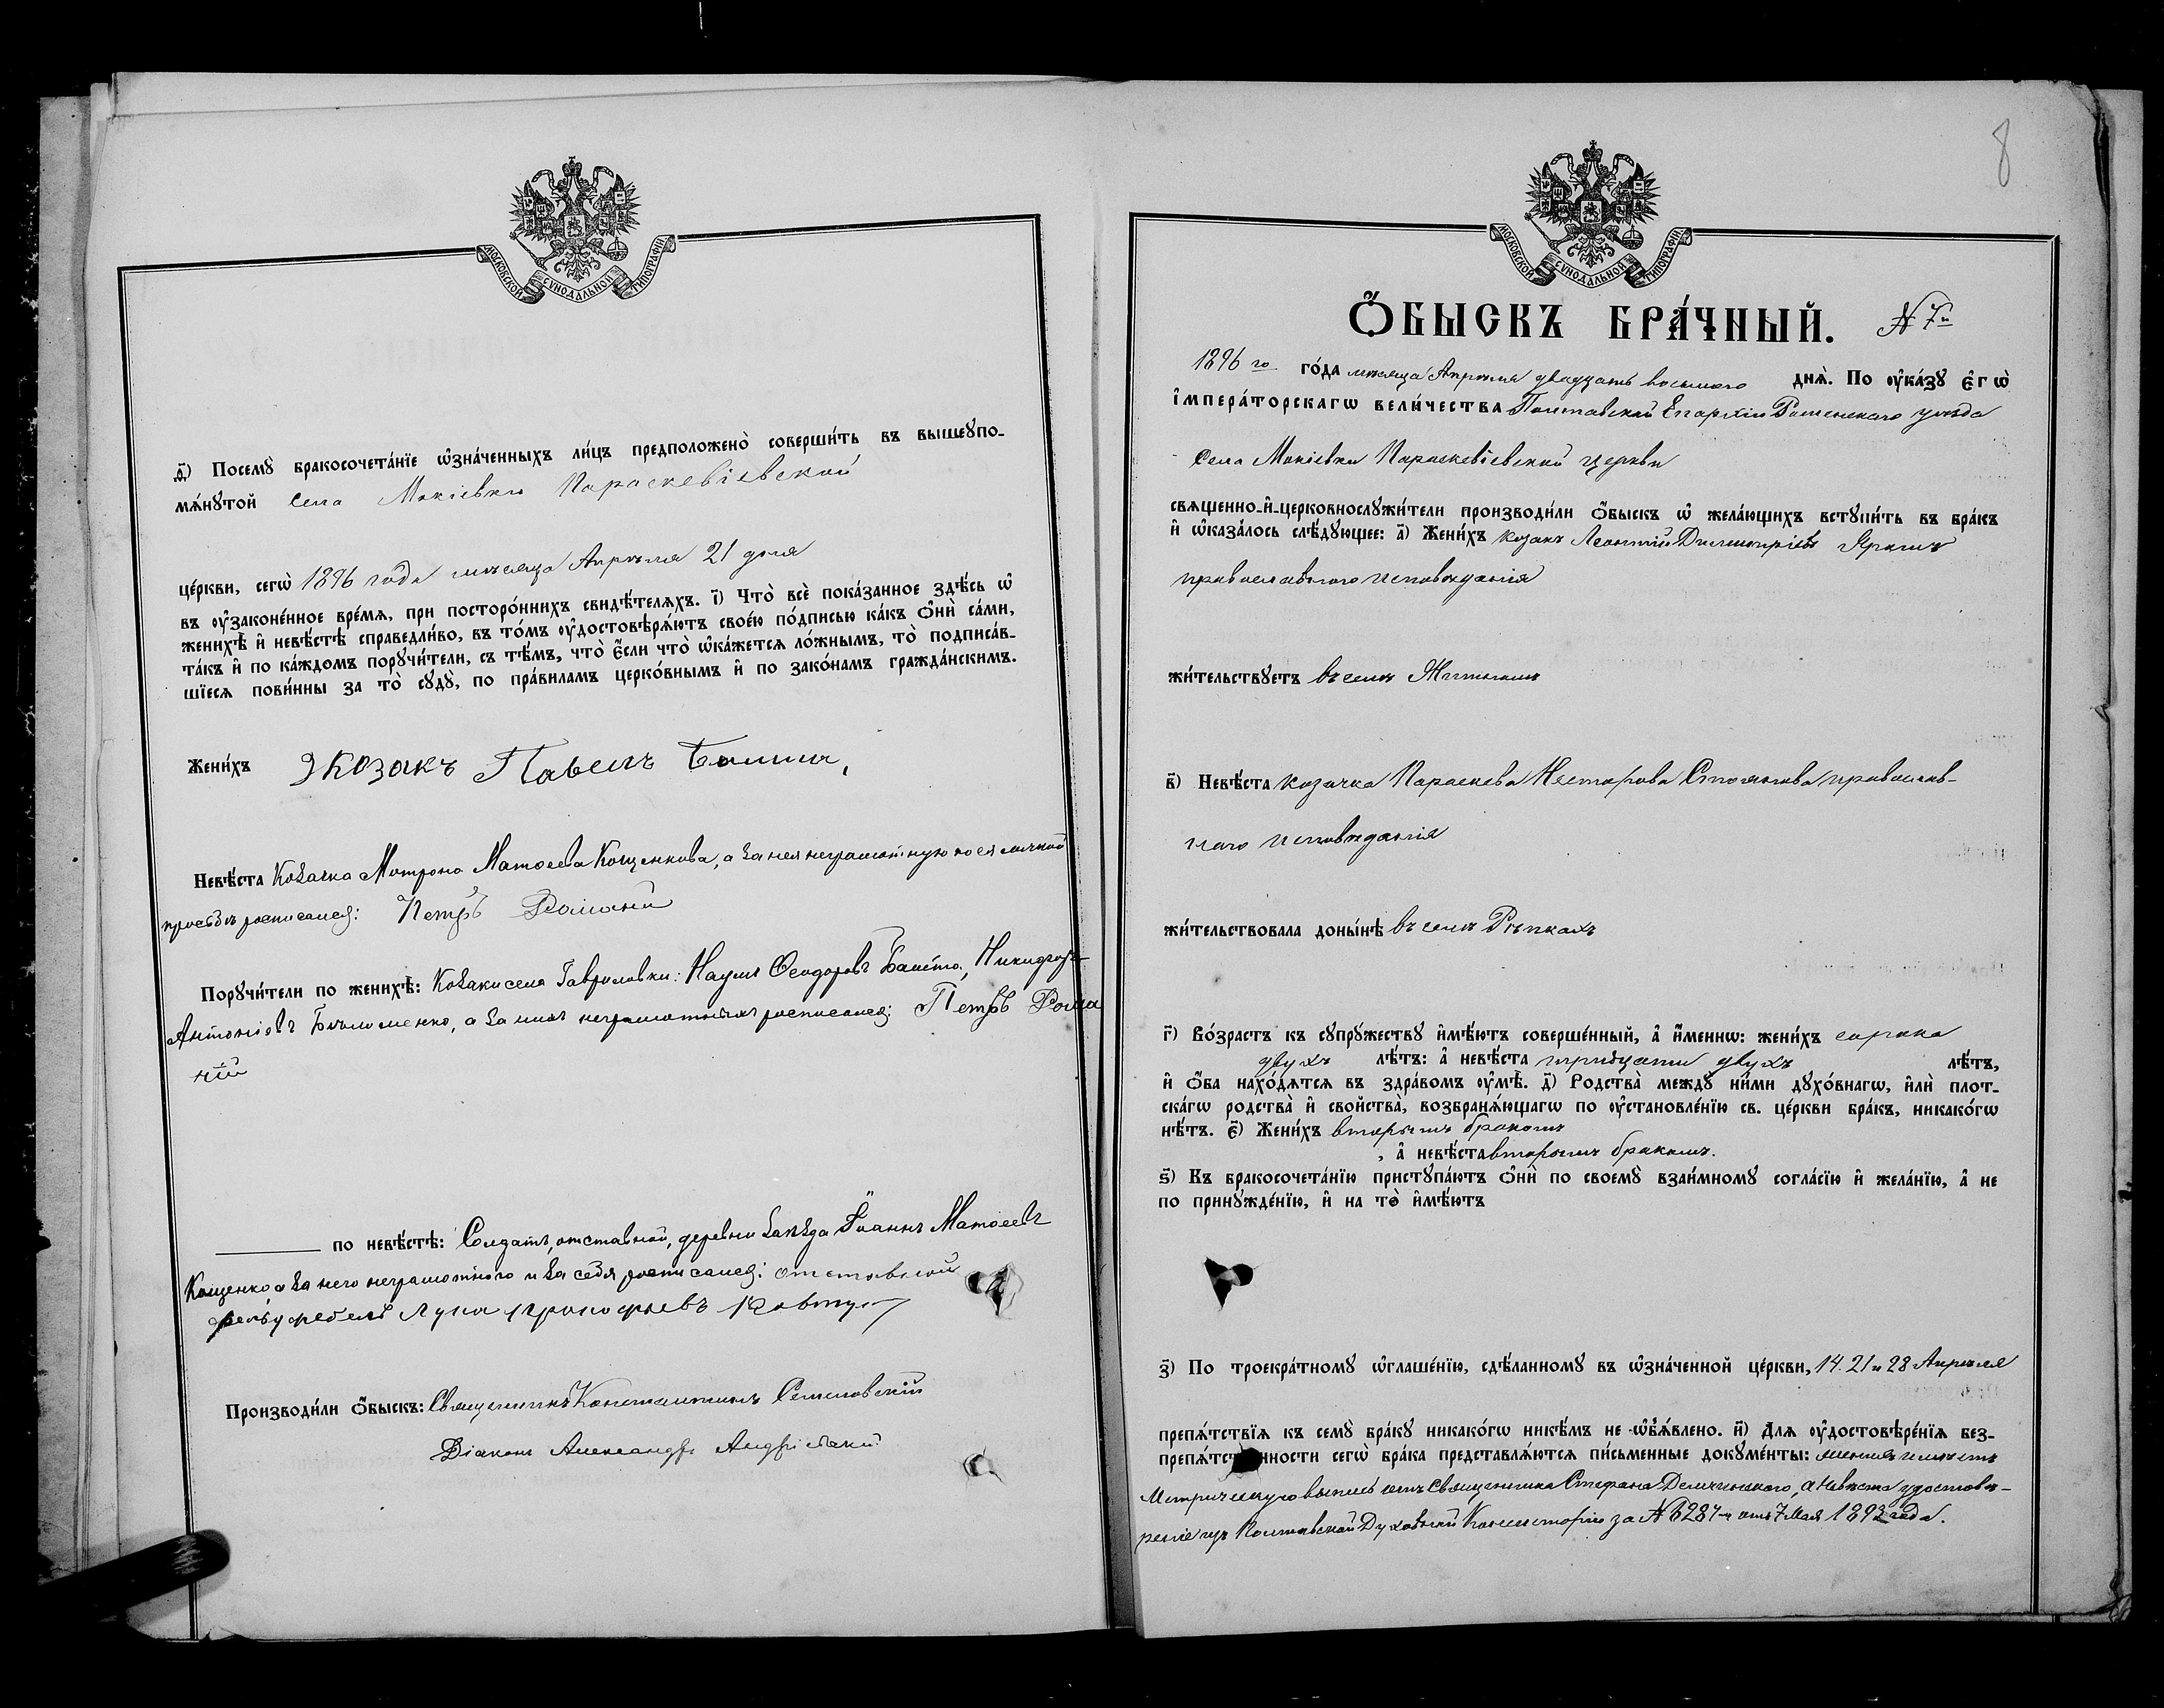 МОСКОВСКОЙ СѴНОДАЛЬНОЙ ТИПОГРАФІИ
ѳ҃) Посемꙋ̀ бракосочета́нїе ѡ҆зна́ченныхъ ли́цъ предположено̀ соверши́ть въ вышеꙋпо-
мѧ́нꙋтой села Мокіевки Параскевіевской
це́ркви, сегѡ̀ 1896 года мѣсяца Апрѣля 21 дня
въ ᲂу҆законе́нное вре́мѧ, при посторо́ннихъ свидѣ́телѧхъ. і҃) Что̀ всѐ пока́занное здѣ́сь ѡ҆
женихѣ̀ и҆ невѣ́стѣ справедли́во, въ то́мъ ᲂу҆достовѣрѧ́ютъ свое́ю по́дписью ка́къ ѻ҆нѝ са́ми,
та́къ и҆ по ка́ждомъ порꙋчи́тели, съ тѣ́мъ, что̀ є҆́сли что̀ ѡ҆ка́жетсѧ ло́жнымъ, то̀ подписа́в-
шїесѧ пови́нны за то̀ сꙋдꙋ̀, по пра́виламъ церко́внымъ и҆ по зако́намъ гражда́нскимъ.
Жени́хъ козакъ Павелъ
Невѣ́ста Козачка Мотрона Матѳеева Кощенкова, а за нея неграмотную по ея личной
просьбѣ росписался: Петръ Романій
Порꙋчи́тели по женихѣ̀: Козаки села Гавриловки: Наумъ Ѳеодоровъ Никифоръ
Антоніевъ а за нихъ неграмотныхъ росписался: Петръ Рома
ній
по невѣ́стѣ: Солдатъ, отставной, деревни Іоаннъ Матѳеевъ
Кощенко а за него неграмотного и за себя росписался: отставной
фельдфебель Лука Прокофьевъ Ковтун
Производи́ли ѻ҆́быскъ: Священникъ Константинъ Семеновскій
Діаконъ Александръ Андріевскій
8
МОСКОВСКОЙ СѴНОДАЛЬНОЙ ТИПОГРАФІИ
Ѻ҆́БЫСКЪ БРА́ЧНЫЙ. № 7й
1896 го го́да мѣсяца Апрѣля двадцать восьмого днѧ̀. По ᲂу҆ка́зꙋ є҆гѡ̀
і҆мпера́торскагѡ вели́чества Полтавской Епархіи Роменскаго уѣзда
Села Мокіевки Параскевіевской церкви
свѧщенно-и҆-церковнослꙋжи́тели производи́ли ѻ҆́быскъ ѡ҆ жела́ющихъ встꙋпи́ть въ бра́къ
и҆ ѡ҆каза́лось слѣ́дꙋющее: а҃) Жени́хъ козакъ Леонтій Димитріевъ Ярошъ
православного исповѣданія
жи́тельствꙋетъ въ селѣ
в҃) Невѣ́ста козачка Параскева Несторова православ-
наго исповѣданія
жи́тельствовала доны́нѣ въ селѣ Рѣпкахъ
г҃) Во́зрастъ къ сꙋпрꙋ́жествꙋ и҆мѣ́ютъ соверше́нный, а҆ и҆́менно: жени́хъ сорока
двухъ лѣ́тъ: а҆ невѣ́ста тридцати двухъ лѣ́тъ,
и҆ ѻ҆́ба нахо́дѧтсѧ въ здра́вомъ ᲂу҆мѣ̀. д҃) Родства̀ междꙋ̀ ни́ми дꙋхо́внагѡ, и҆лѝ плот-
ска́гѡ родства̀ и҆ свойства̀, возбранѧ́ющагѡ по ᲂу҆становле́нїю св. це́ркви бра́къ, никако́гѡ
нѣ́тъ. є҃) Жени́хъ вторымъ бракомъ
, а҆ невѣ́ста вторымъ бракомъ.
ѕ҃) Къ бракосочета́нїю пристꙋпа́ютъ ѻ҆нѝ по своемꙋ̀ взаи́мномꙋ согла́сїю и҆ жела́нїю, а҆ не
по принꙋжде́нїю, и҆ на то̀ и҆мѣ́ютъ
з҃) По троекра́тномꙋ ѡ҆глаше́нїю, сдѣ́ланномꙋ въ ѡ҆зна́ченной це́ркви, 14. 21 и 28 Апрѣля
препѧ́тствїѧ къ семꙋ̀ бра́кꙋ никако́гѡ никѣ́мъ не ѡ҆б̾ѧ́влено. и҃) Длѧ ᲂу҆достовѣре́нїѧ без-
препѧ́тственности сегѡ̀ бра́ка представлѧ́ютсѧ пи́сьменные докꙋме́нты: женихъ имѣетъ
Метрическую выпись отъ Священника Стефана а невѣста удостовѣ-
реніе изъ Полтавской Духовной Консисторіи за № 6287-м отъ 7 Мая 1893 года.